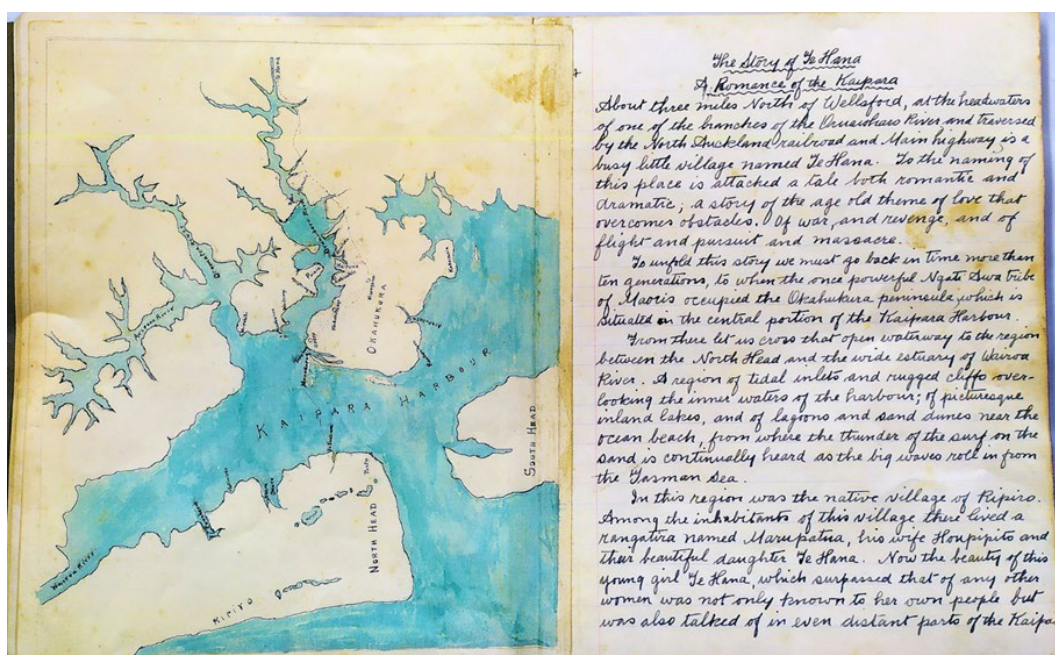 The Story of Te Hana
A Romance of the Kaipara
About three miles North of Wellsford, at the headwaters
of one of the branches of the Oruawharo River and traversed
by the North Auckland railroad and Main highway, is a
busy little village named Te Hana. To the naming of
this place is attached a tale both romantic and
dramatic; a story of the age old theme of love that
overcomes obstacles. Of war, and revenge, and of
flight and pursuit and massacre.
To unfold this story we must go back in time more than
ten generations, to when the once powerful Ngati Awa tribe
of Maoris occupied the Okahukura peninsula, which is
situated in the central portion of the Kaipara Harbour.
From there let us cross that open waterway to the region
between the North Head and the wide estuary of Wairoa
River. A region of tidal inlets and rugged cliffs over-
looking the inner waters of the harbour; of picturesque
inland lakes, and of lagoons and sand dunes near the
ocean beach, from where the thunder of the surf on the
sand is continually heard as the big waves roll in from
the Tasman Sea.
In this region was the native village of Ripiro.
Among the inhabitants of this village there lived a
rangatira named Marupatua, his wife Houpipito and
their beautiful daughter Te Hana. Now the beauty of this
young girl Te Hana, which surpassed that of any other
women was not only known to her own people but
was also talked of in even distant parts of the Kaipa
KAIPARA HARBOUR
OKAHUKURA
SOUTH HEAD
NORTH HEAD
RIPIRO
WAIROA RIVER